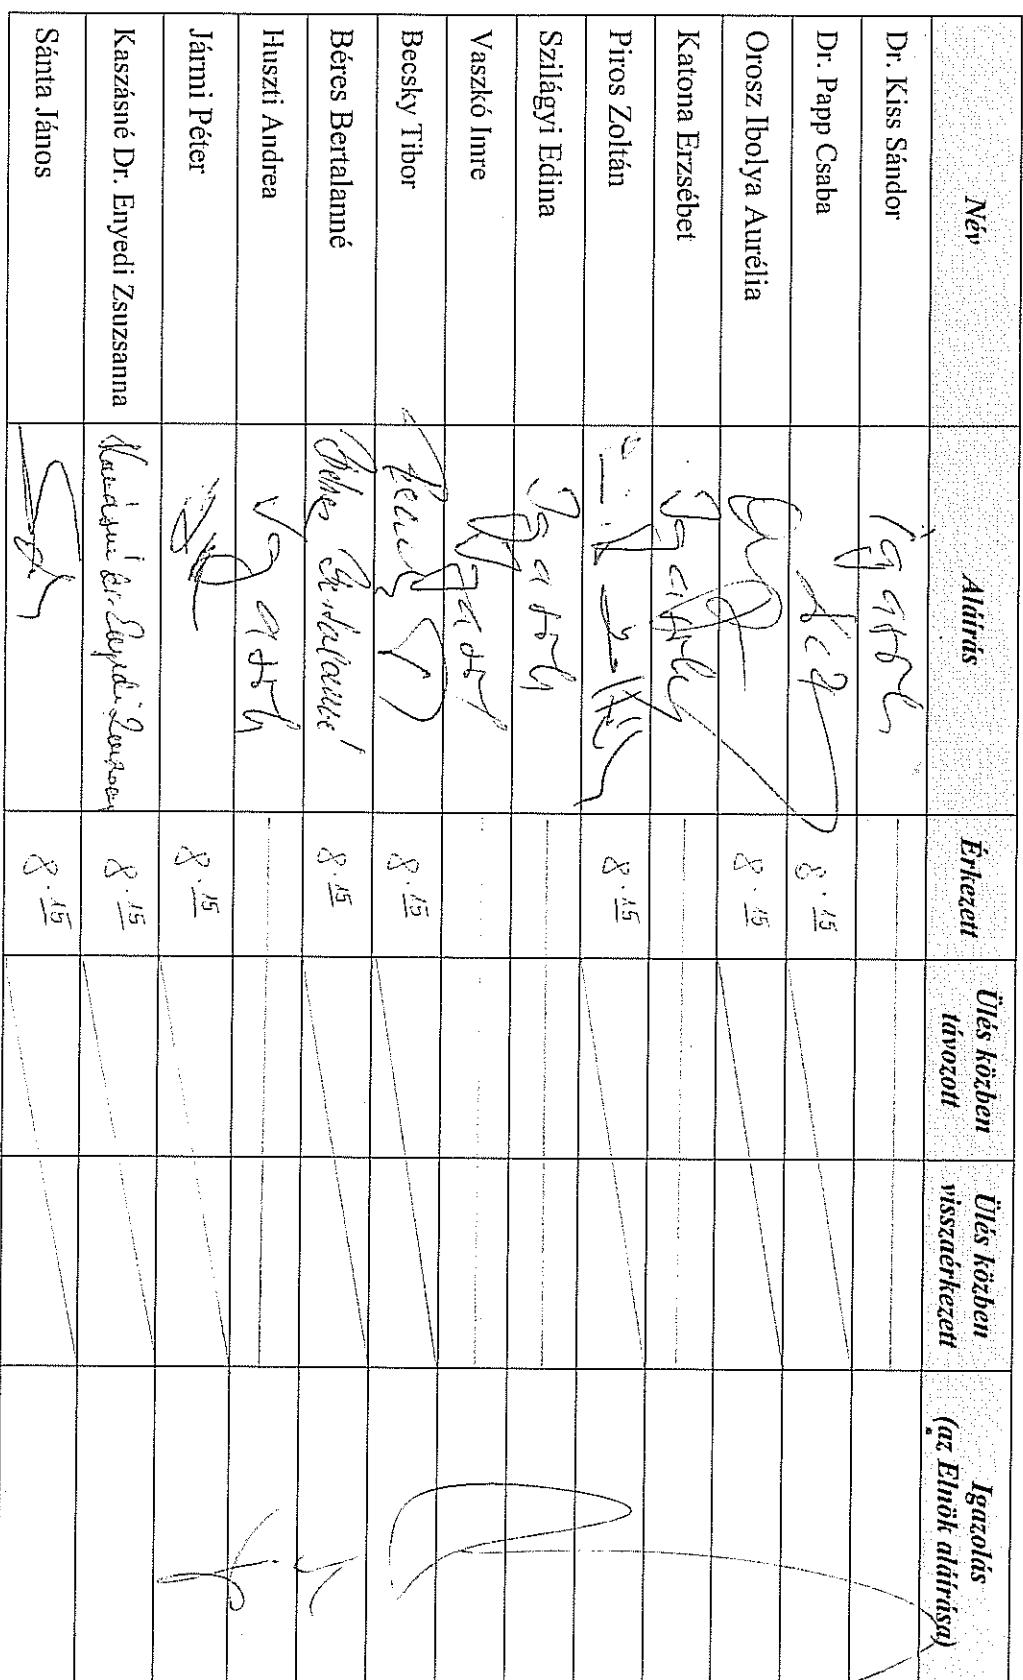 Név Aláírás Érkezett Ülés közben távozott Ülés közben visszaérkezett Igazolás (az Elnök aláírása)
Dr. Kiss Sándor Igazolt
Dr. Papp Csaba 8.15
Orosz Ibolya Aurélia 8.15
Katona Erzsébet Igazolt
Piros Zoltán 8.15
Szilágyi Edina Igazolt
Vaszkó Imre Igazolt
Becsky Tibor 8.15
Béres Bertalanné Béres Bertalanné 8.15
Huszti Andrea Igazolt
Jármi Péter 8.15
Kaszásné Dr. Enyedi Zsuzsanna Kaszásné dr Enyedi Zsuzsa 8.15
Sánta János 8.15